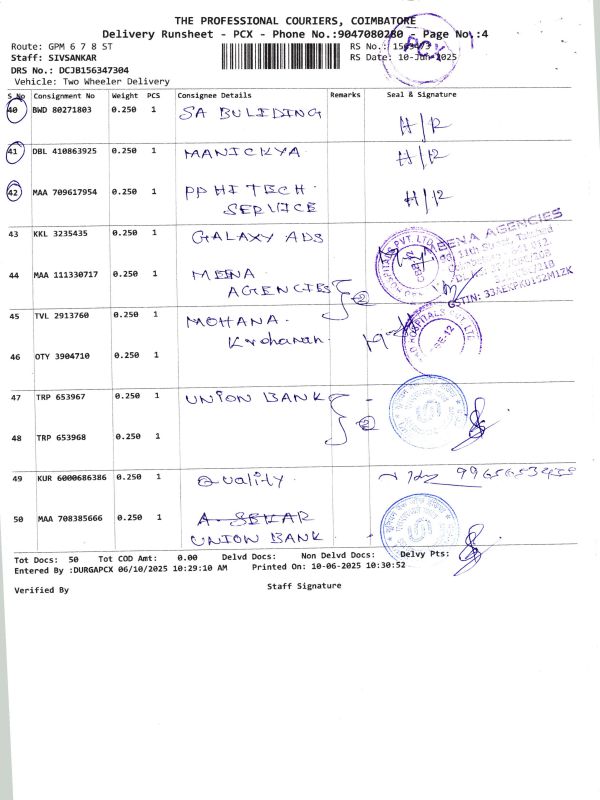 THE PROFESSIONAL COURIERS, COIMBATORE
Delivery Runsheet - PCX - Phone No.:9047080280 - Page No.:4
Route: GPM 6 7 8 ST
RS No.:
Staff: SIVSANKAR
RS Date: 10-Jun-2025
DRS No.: DCJB156347304
Vehicle: Two Wheeler Delivery
PCX
S No Consignment No Weight PCS Consignee Details Remarks Seal & Signature
40 BWD 80271803 0.250 1 SA BULIDING H/R
41 DBL 410863925 0.250 1 MANICKYA. H/R
42 MAA 709617954 0.250 1 PP HI TECH.
SERVICE H/R
43 KKL 3235435 0.250 1 GALAXY ADS
MEENA AGENCIES
HOSPITALS PVT. LTD.
CBE-12
44 MAA 111330717 0.250 1 MEENA
AGENCIES 2
GSTIN: 33AEKPK0152M1ZK
45 TVL 2913760 0.250 1 MOHANA.
HOSPITALS PVT LTD
CBE-12
46 OTY 3904710 0.250 1
47 TRP 653967 0.250 1 UNION BANK 2
48 TRP 653968 0.250 1
49 KUR 6000686386 0.250 1 Quality.
50 MAA 708385666 0.250 1 A. SEKAR
UNION BANK.
Tot Docs: 50 Tot COD Amt: 0.00 Delvd Docs: Non Delvd Docs: Delvy Pts:
Entered By :DURGAPCX 06/10/2025 10:29:10 AM Printed On: 10-06-2025 10:30:52
Staff Signature
Verified By